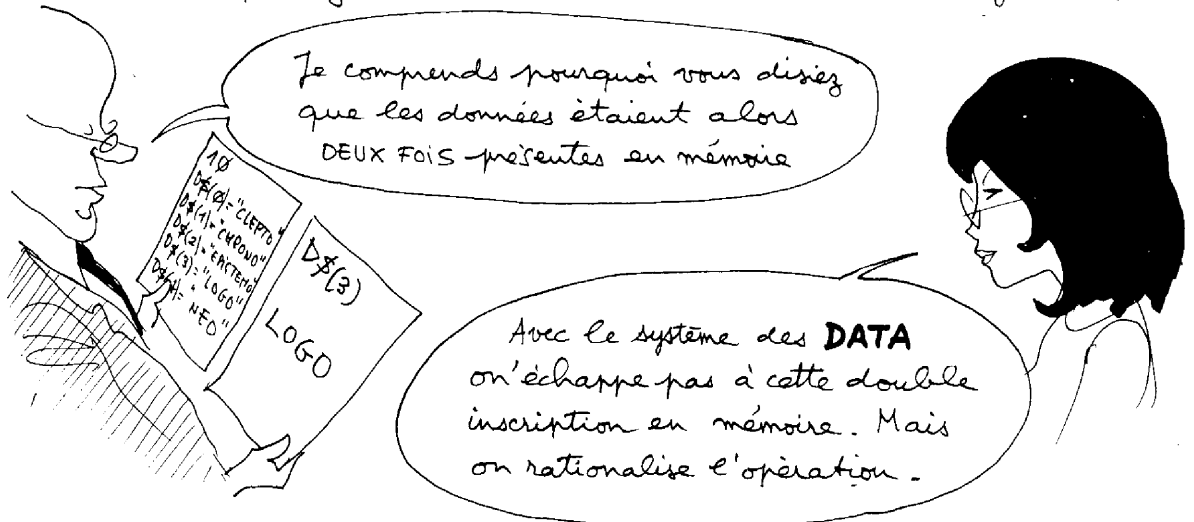 Je comprends pourquoi vous disiez
que les données étaient alors
DEUX FOIS présentes en mémoire
10
D$(0)="CLEPTO"
D$(1)="CHRONO"
D$(2)="EPISTEMO"
D$(3)="LOGO"
D$(4)="NEO"
D$(3)
LOGO
Avec le système des DATA
on'échappe pas à cette double
inscription en mémoire. Mais
on rationalise l'opération.